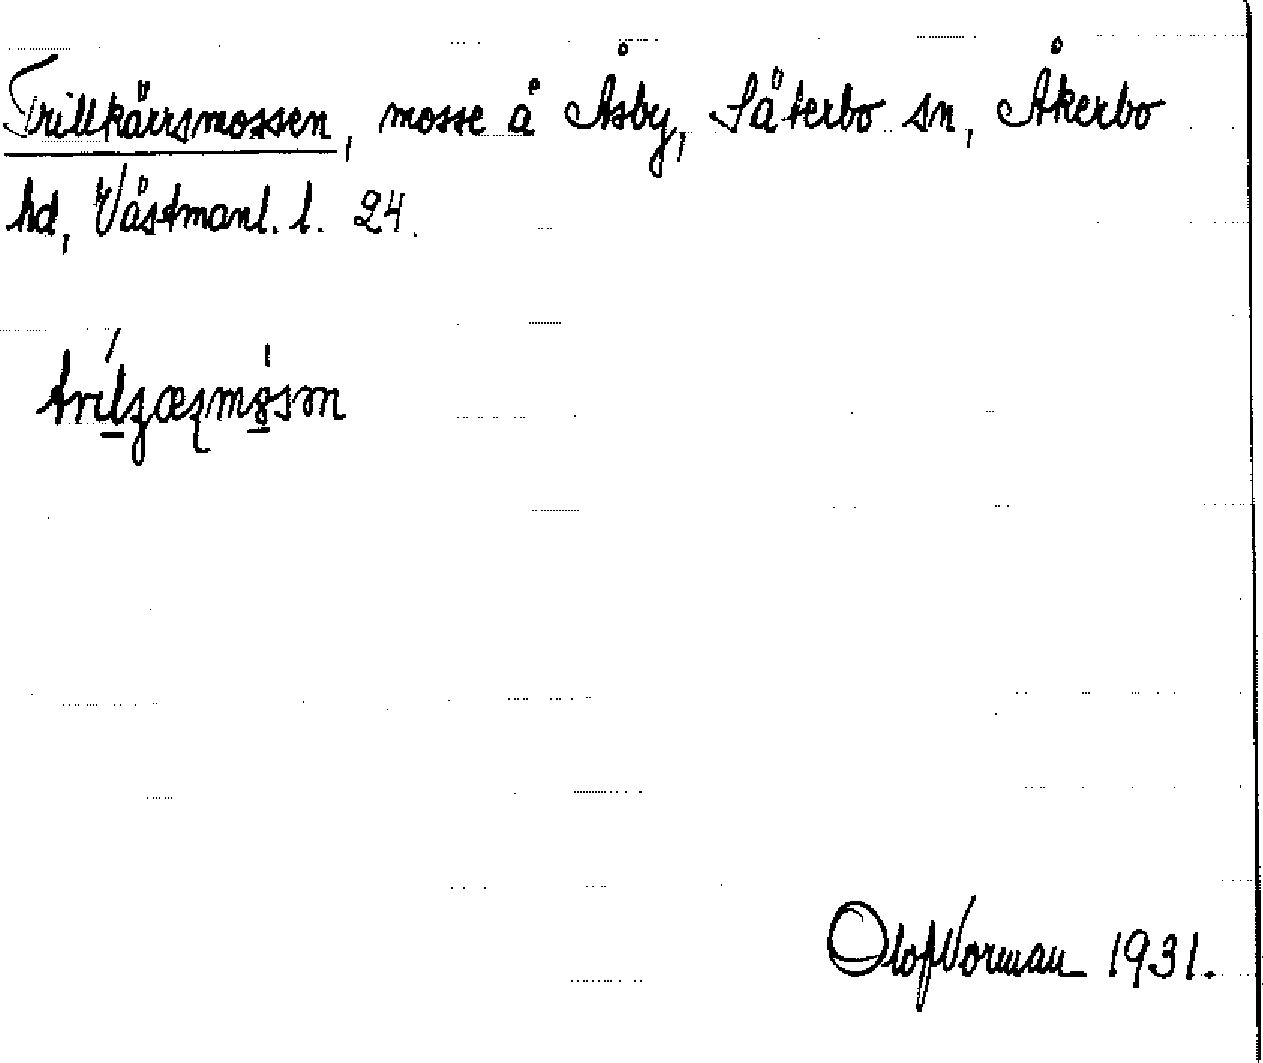 Trillkärrsmossen, mosse å Åsby, Säterbo sn, Åkerbo
hd, Västmanl. l. 24.
Olof Norman 1931.